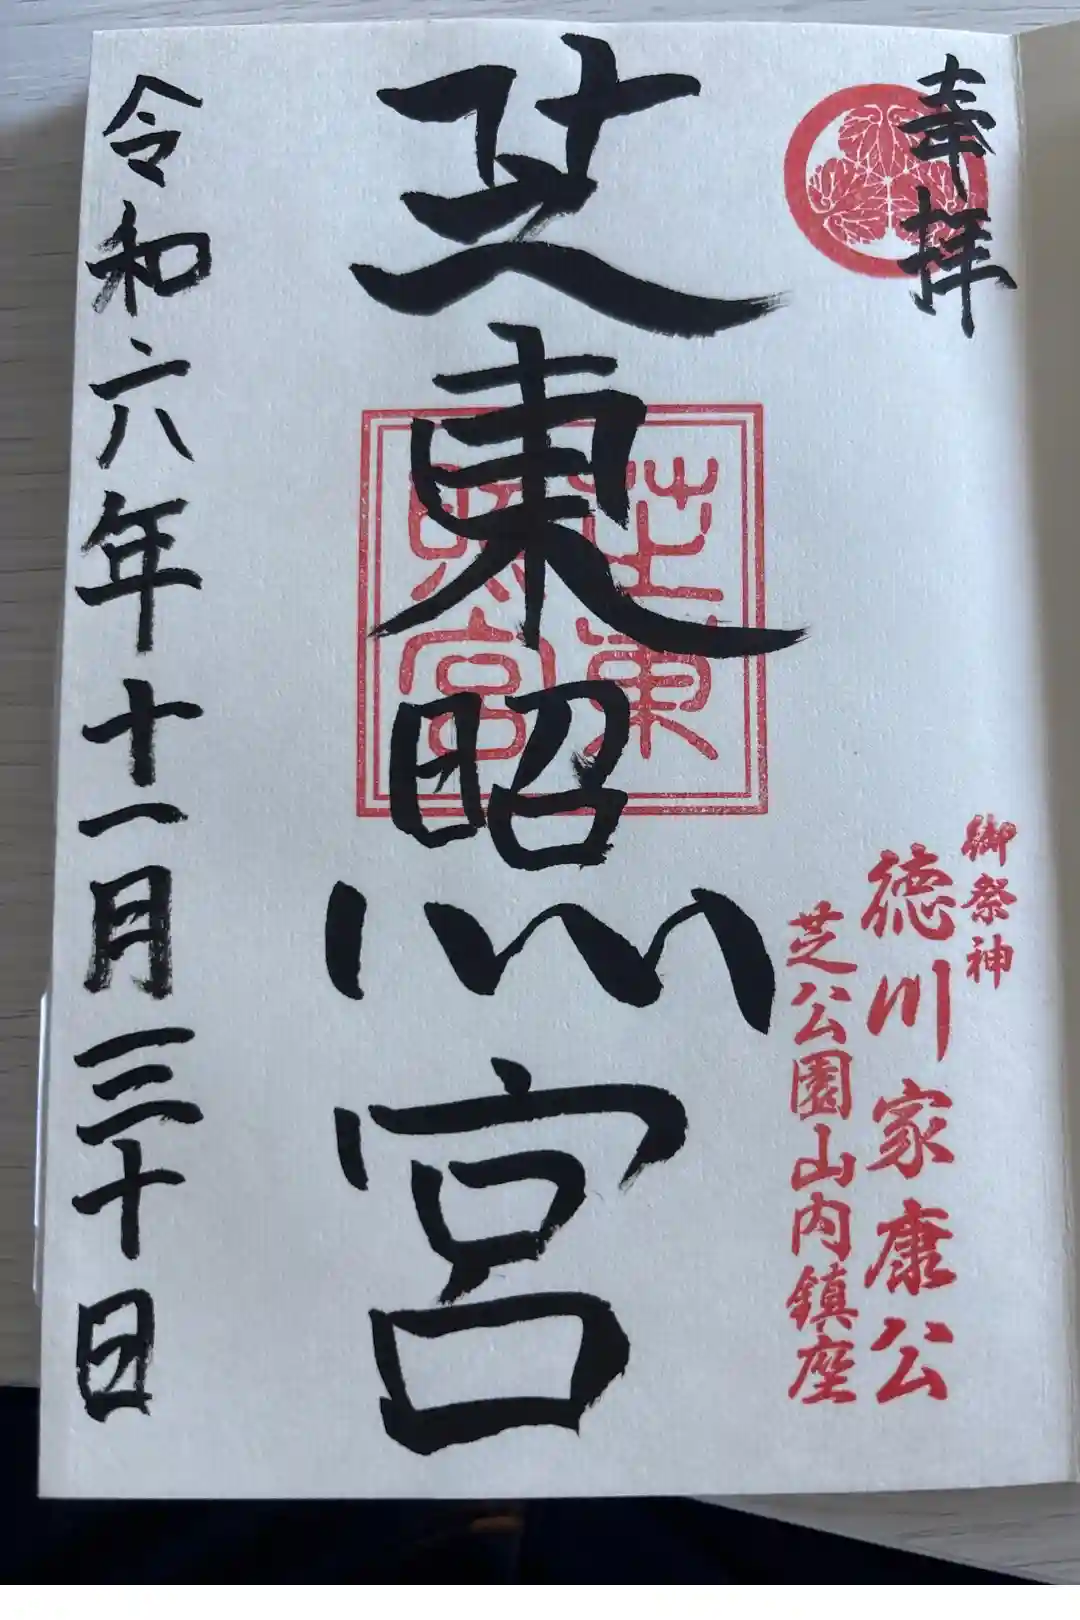 奉拝
御祭神
徳川家康公
芝公園山内鎮座
芝東照宮
芝東照宮
令和六年十一月三十日